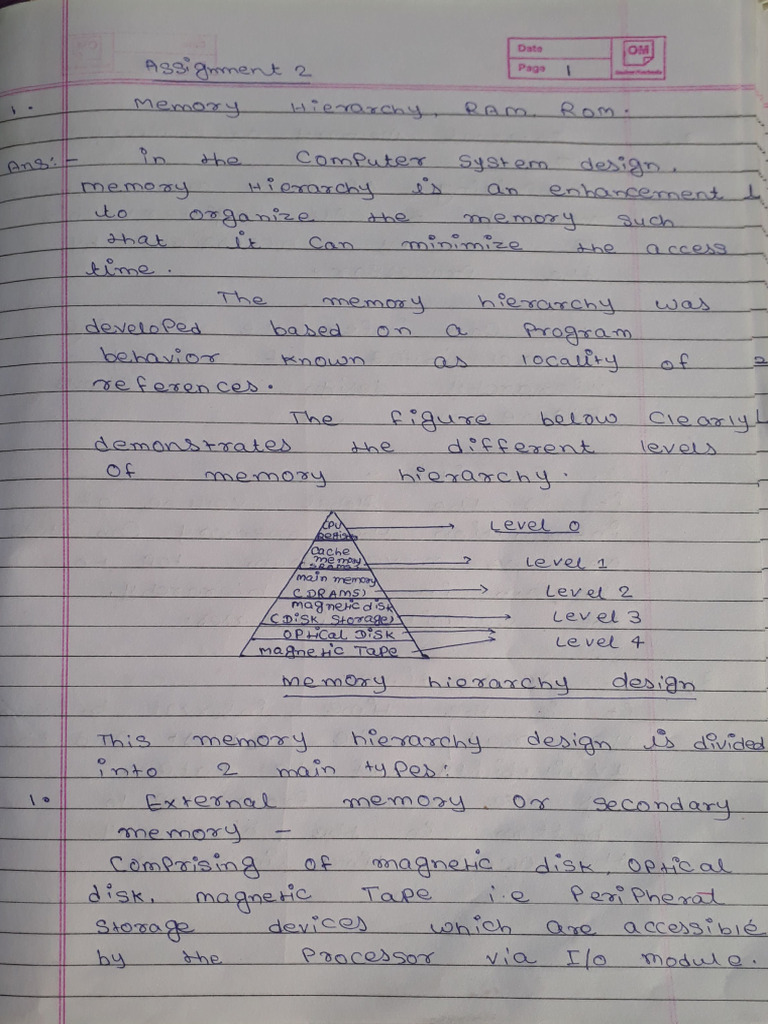 Assignment 2
Date
Page 1
OM
1. Memory Hierarchy, RAM, ROM.
Ans:- in the Computer System design,
memory Hierarchy is an enhancement
to organize the memory such
that it can minimize the access
time.
The memory hierarchy was
developed based on a Program
behavior known as locality of
references.
The figure below Clearly
demonstrates the different levels
of memory hierarchy.
CPU
Level 0
Cache
memory
Level 1
main memory
(DRAMS)
Level 2
magnetic disk
(Disk Storage)
Level 3
Optical Disk
Level 4
magnetic Tape
memory hierarchy design
This memory hierarchy design is divided
into 2 main types:
1. External memory or secondary
memory -
Comprising of magnetic disk, optical
disk, magnetic Tape i.e Peripheral
Storage devices which are accessible
by the Processor via I/o module.